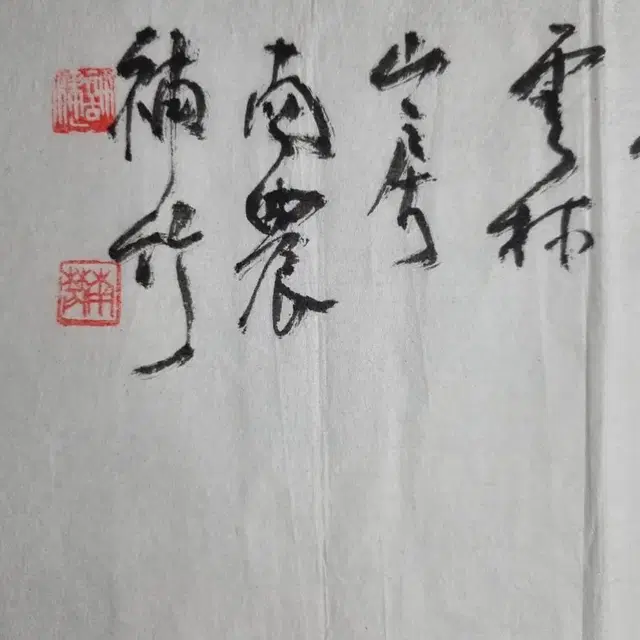 雲林
山房
南農
補竹